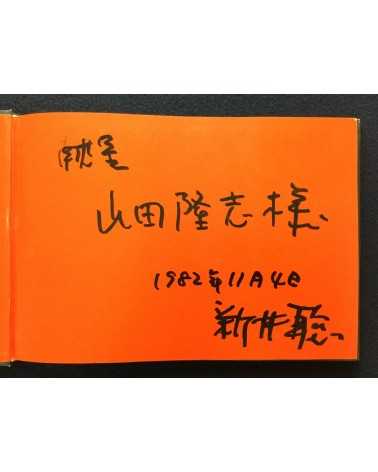 献呈
山田隆志様
1982年11月4日
新井聡